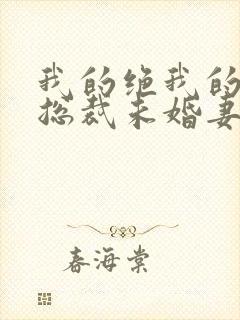 我的绝我的
总裁未婚妻
春海棠